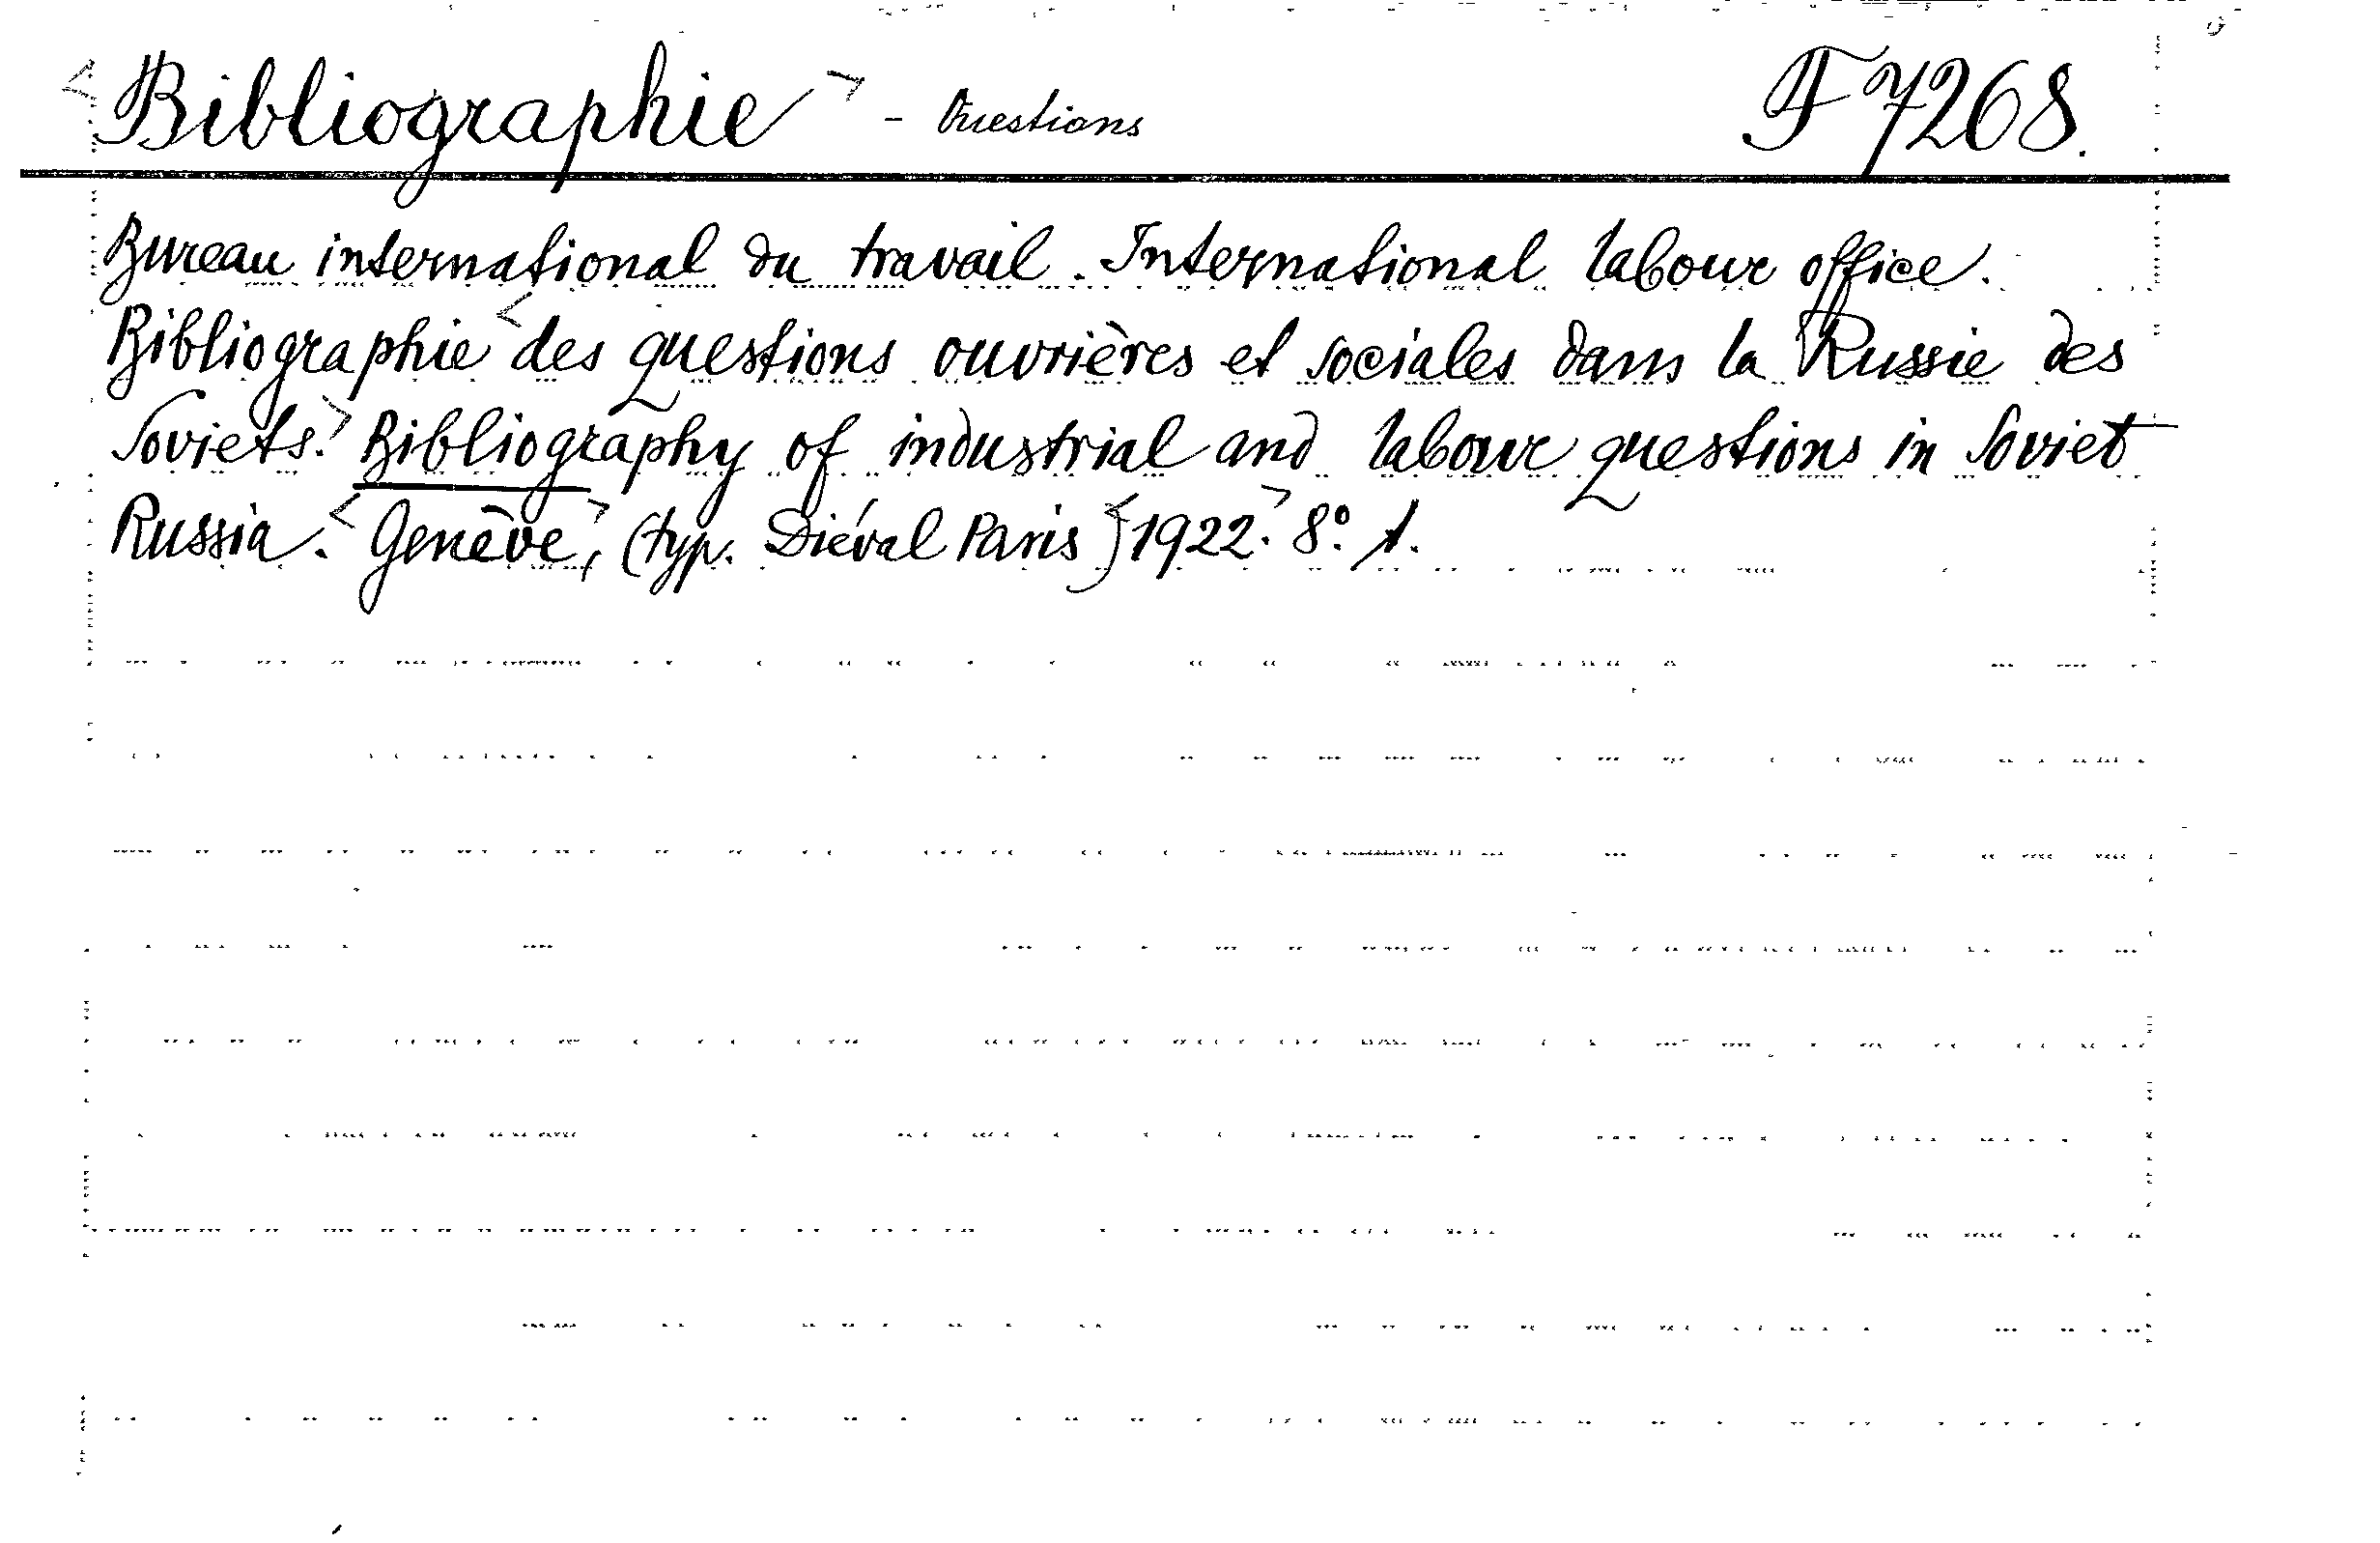 <Bibliographie> - Questions F 7268.
Bureau international du travail. International labour office.
Bibliographie <des questions ouvrières et sociales dans la Russie des
Soviets.> Bibliography of industrial and labour questions in Soviet
Russia. <Genève>, (typ. Diéval Paris) <1922.> 8º.